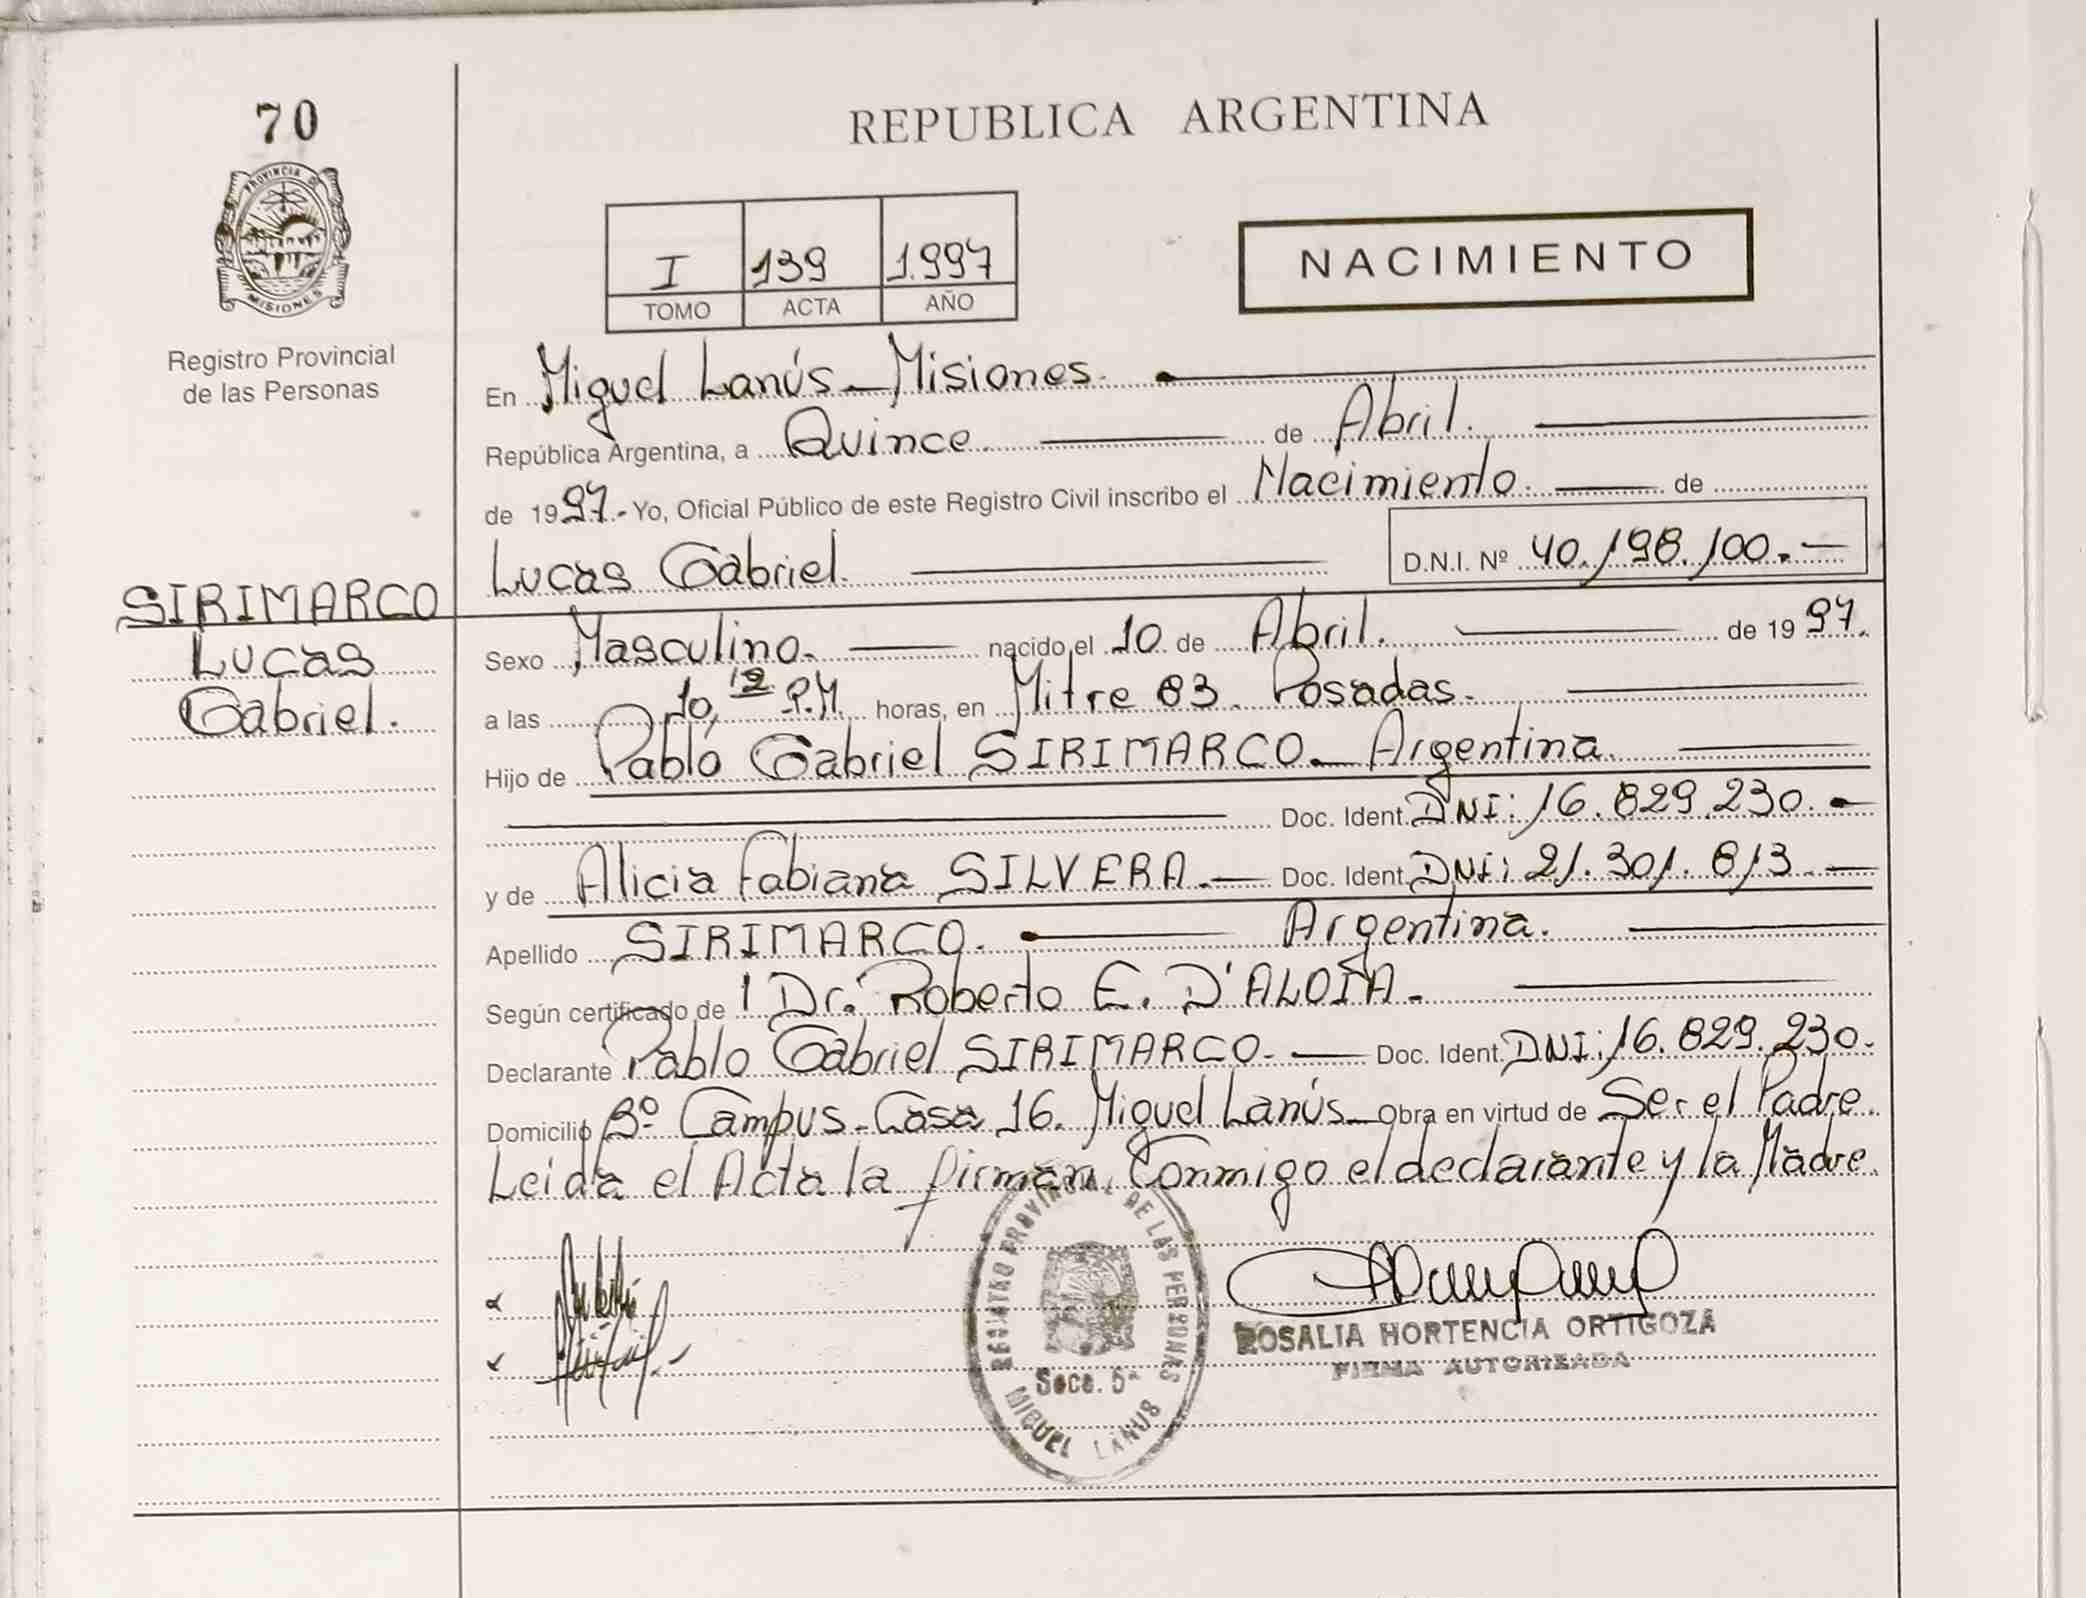 70
PROVINCIA DE
MISIONES
Registro Provincial
de las Personas
SIRIMARCO
Lucas
Gabriel.
REPUBLICA ARGENTINA
I 139 1.997
TOMO ACTA AÑO
NACIMIENTO
En Miguel Lanús - Misiones.
República Argentina, a Quince. de Abril.
de 1997.- Yo, Oficial Público de este Registro Civil inscribo el Nacimiento. de
Lucas Gabriel. D.N.I. Nº 40.198.100.-
Sexo Masculino.- nacido el 10 de Abril. de 1997.
a las 10,12 P.M. horas, en Mitre 83. Posadas.
Hijo de Pablo Gabriel SIRIMARCO.- Argentina.
Doc. Ident. DNI: 16.829.230.-
y de Alicia Fabiana SILVERA.- Doc. Ident. DNI: 21.301.813.-
Apellido SIRIMARCO. Argentina.
Según certificado de 1 Dr. Roberto E. D'ALOIA.-
Declarante Pablo Gabriel SIRIMARCO.- Doc. Ident. DNI: 16.829.230.
Domicilio Bº Campus-Casa 16. Miguel Lanús- Obra en virtud de Ser el Padre.
Leida el Acta la firman, Conmigo el declarante y la Madre.
REGISTRO PROVINCIAL DE LAS PERSONAS
Secc. 5ª
MIGUEL LANUS
ROSALIA HORTENCIA ORTIGOZA
FIRMA AUTORIZADA